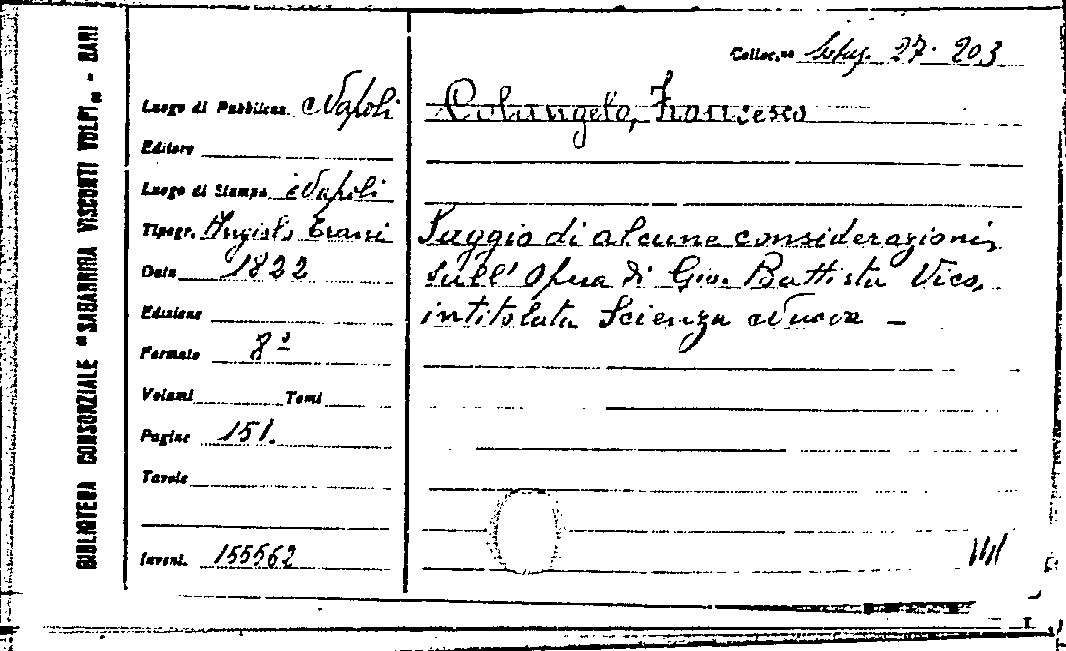 BIBLIOTECA CONSORZIALE "SAGARRIGA VISCONTI VOLPI„ - BARI
Colloc.ne 27. 203
Luogo di Pubblicaz. Napoli
Editore
Luogo di Stampa Napoli
Tipogr. Angelo Trani
Data 1822
Edizione
Formato 8º
Volumi Tomi
Pagine 151.
Tavole
Invent. 155562
Colangelo, Francesco
Saggio di alcune considerazioni,
sull' Opera di Gio. Battista Vico,
intitolata Scienza Nuova -